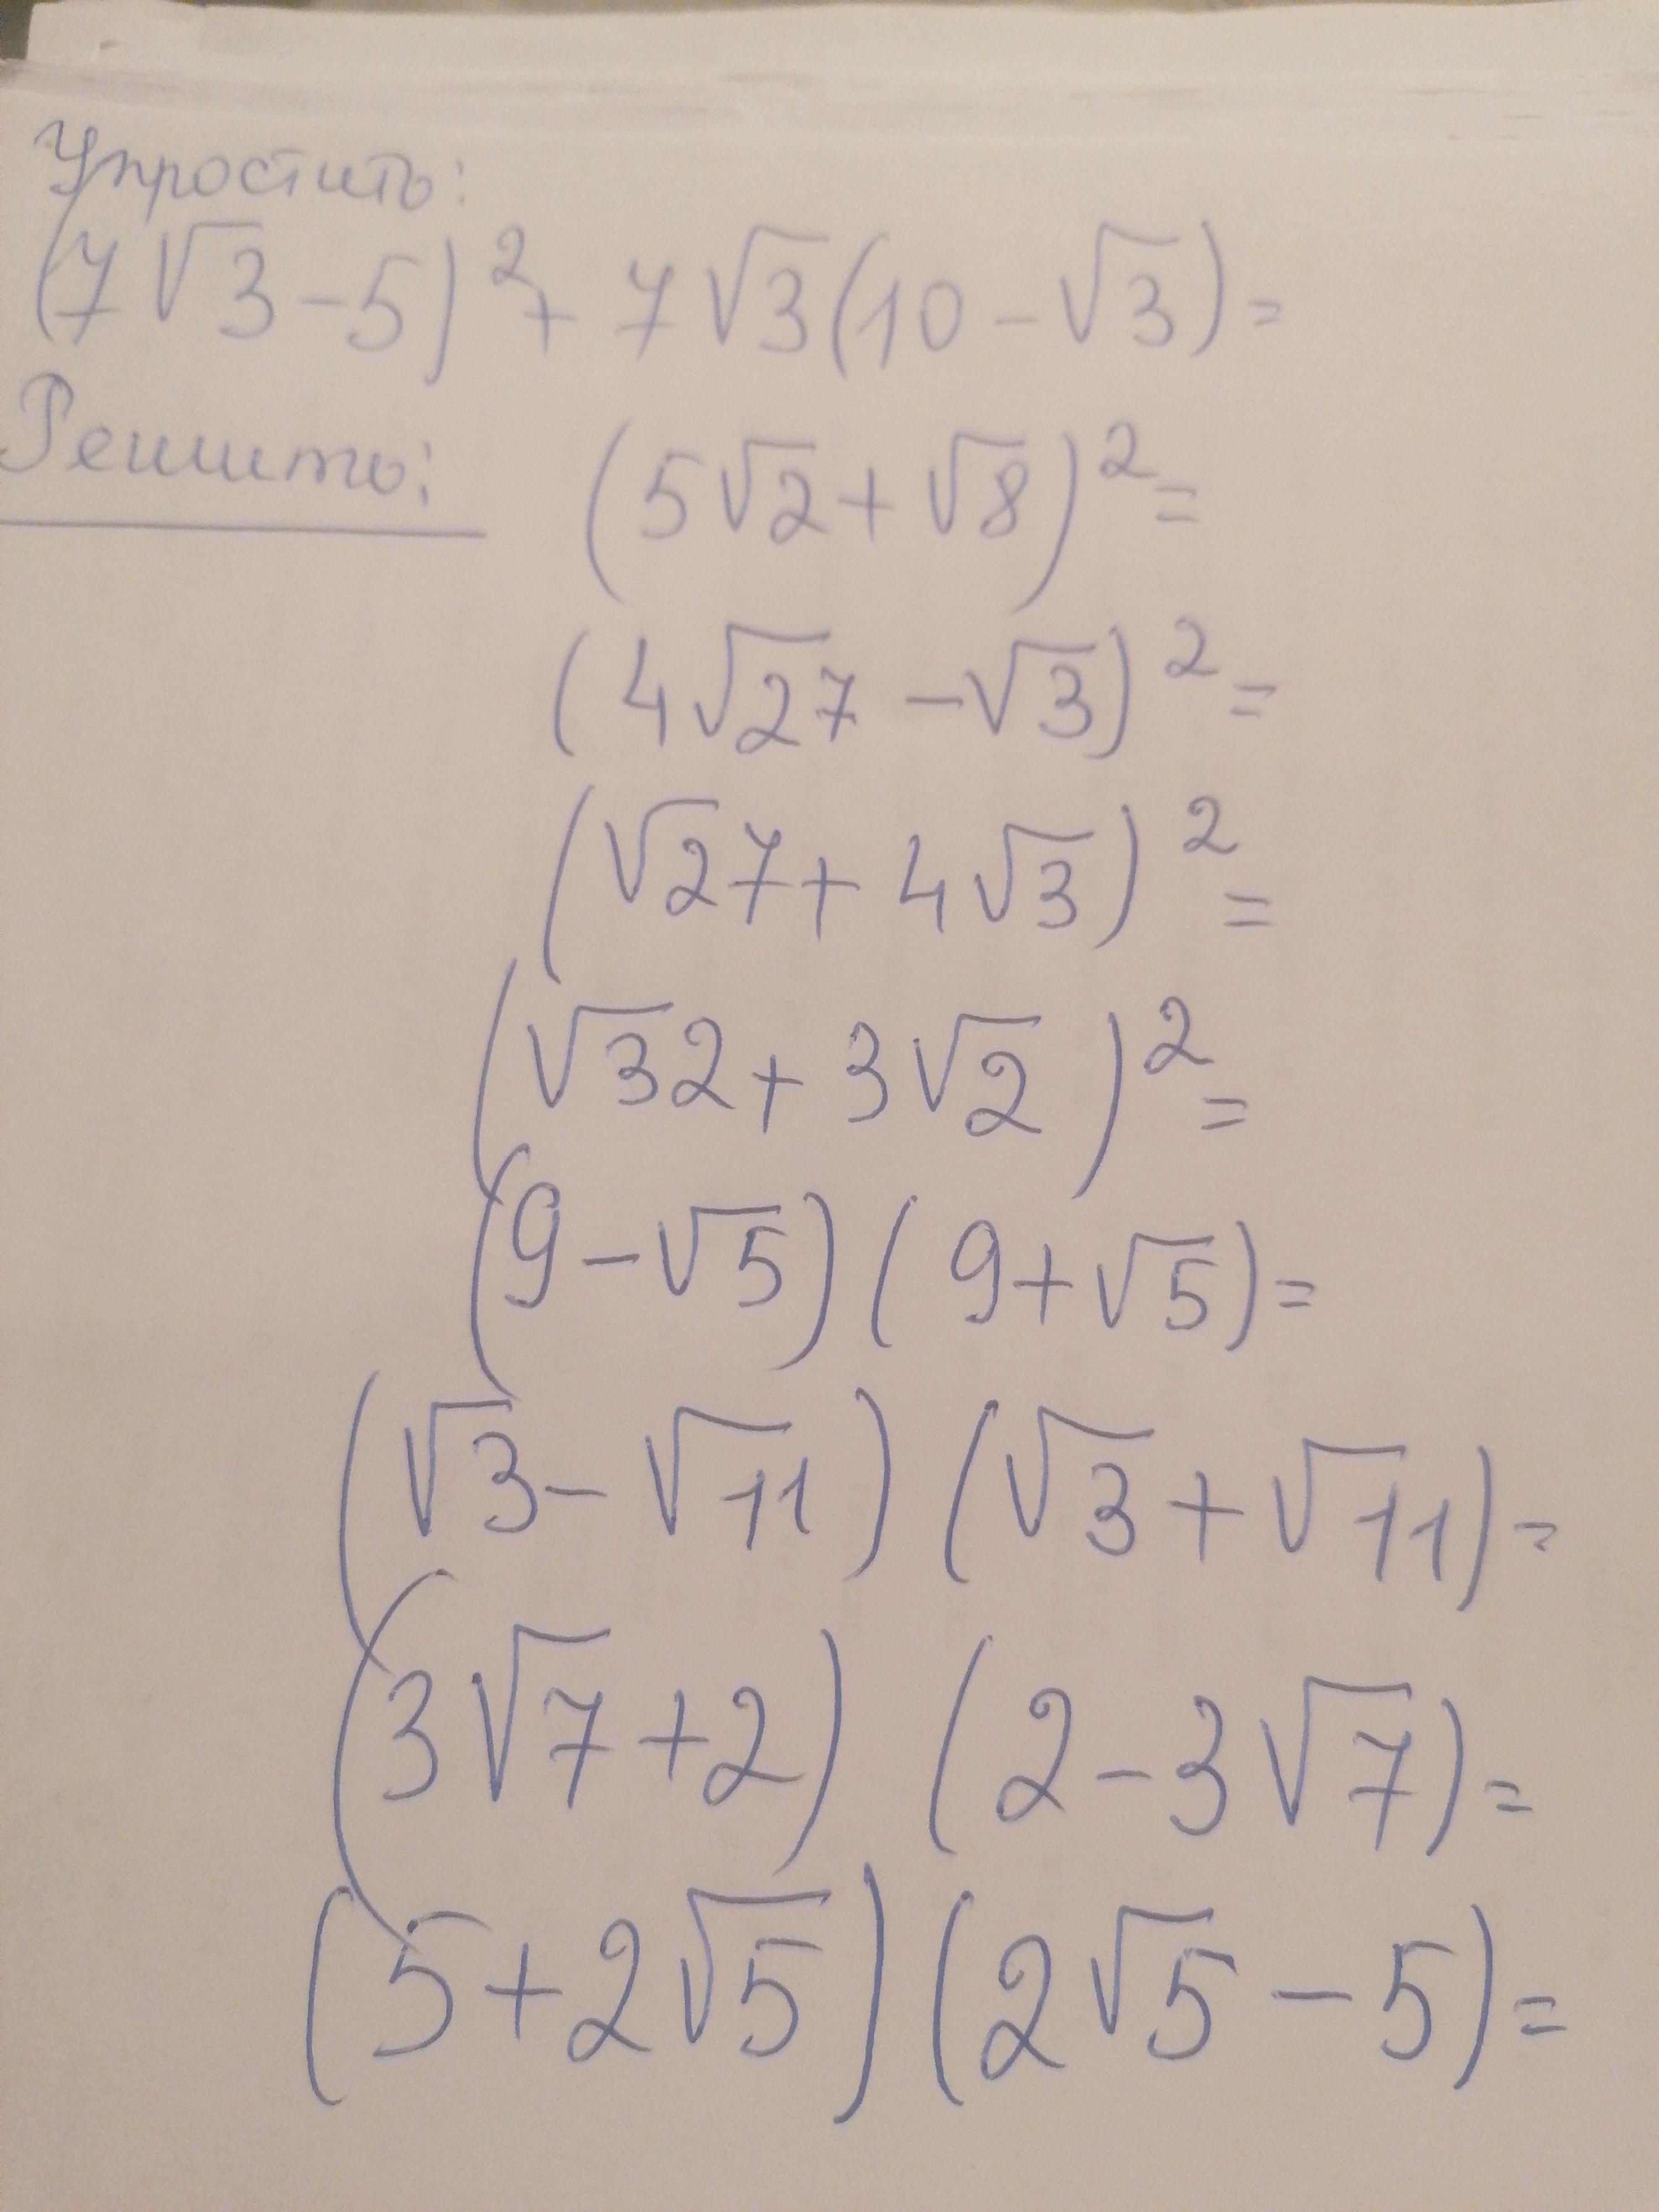 Упростить:
(7√3-5)²+7√3(10-√3)=
Решить:
(5√2+√8)²=
(4√27-√3)²=
(√27+4√3)²=
(√32+3√2)²=
(9-√5)(9+√5)=
(√3-√11)(√3+√11)=
(3√7+2)(2-3√7)=
(5+2√5)(2√5-5)=